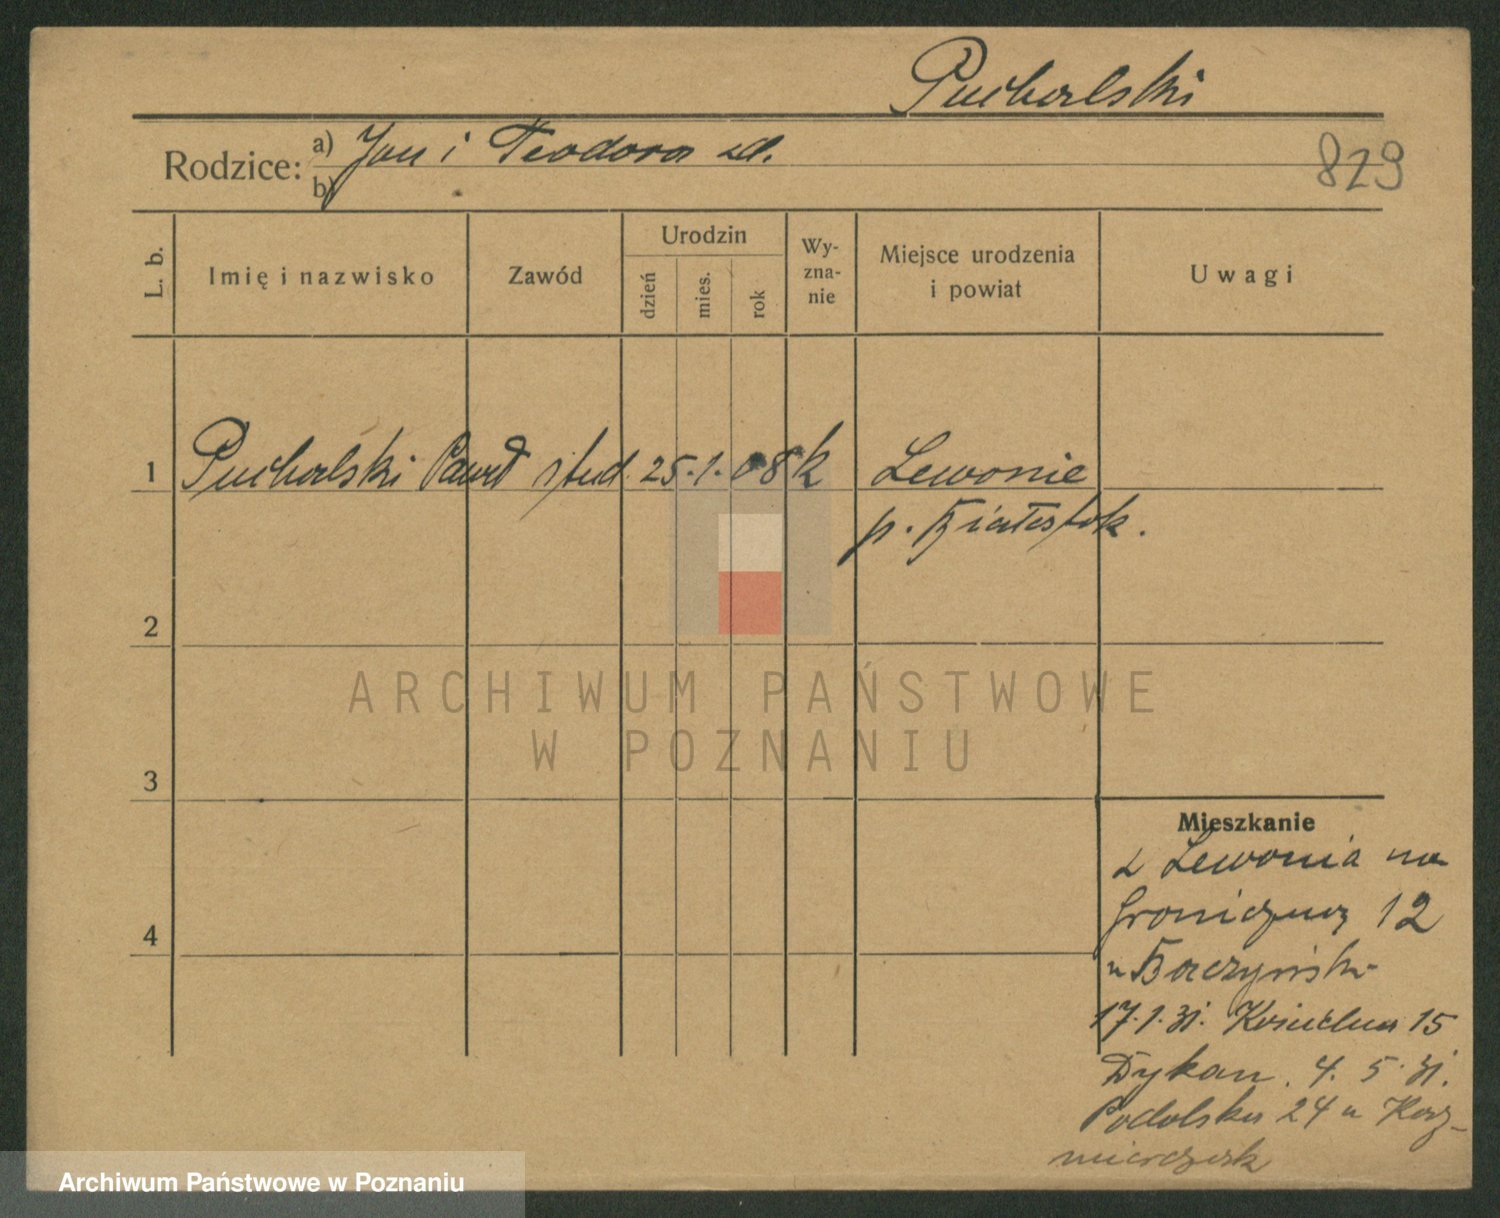 Puchalski
Rodzice: a) Jan i Teodora zd.
b)
829
L. b.
Imię i nazwisko
Zawód
Urodzin
dzień
mies.
rok
Wy-
zna-
nie
Miejsce urodzenia
i powiat
Uwagi
1 Puchalski Paweł stud. 25. 1. 08 k Lewonie
p. Białostok.
2
ARCHIWUM PAŃSTWOWE
W POZNANIU
3
Mieszkanie
z Lewonia na
Graniczną 12
u Baczyńsk
4
17.1.31. Kościelna 15
Dykan. 4. 5. 31.
Podolska 24 u Kaź-
mierczak
Archiwum Państwowe w Poznaniu